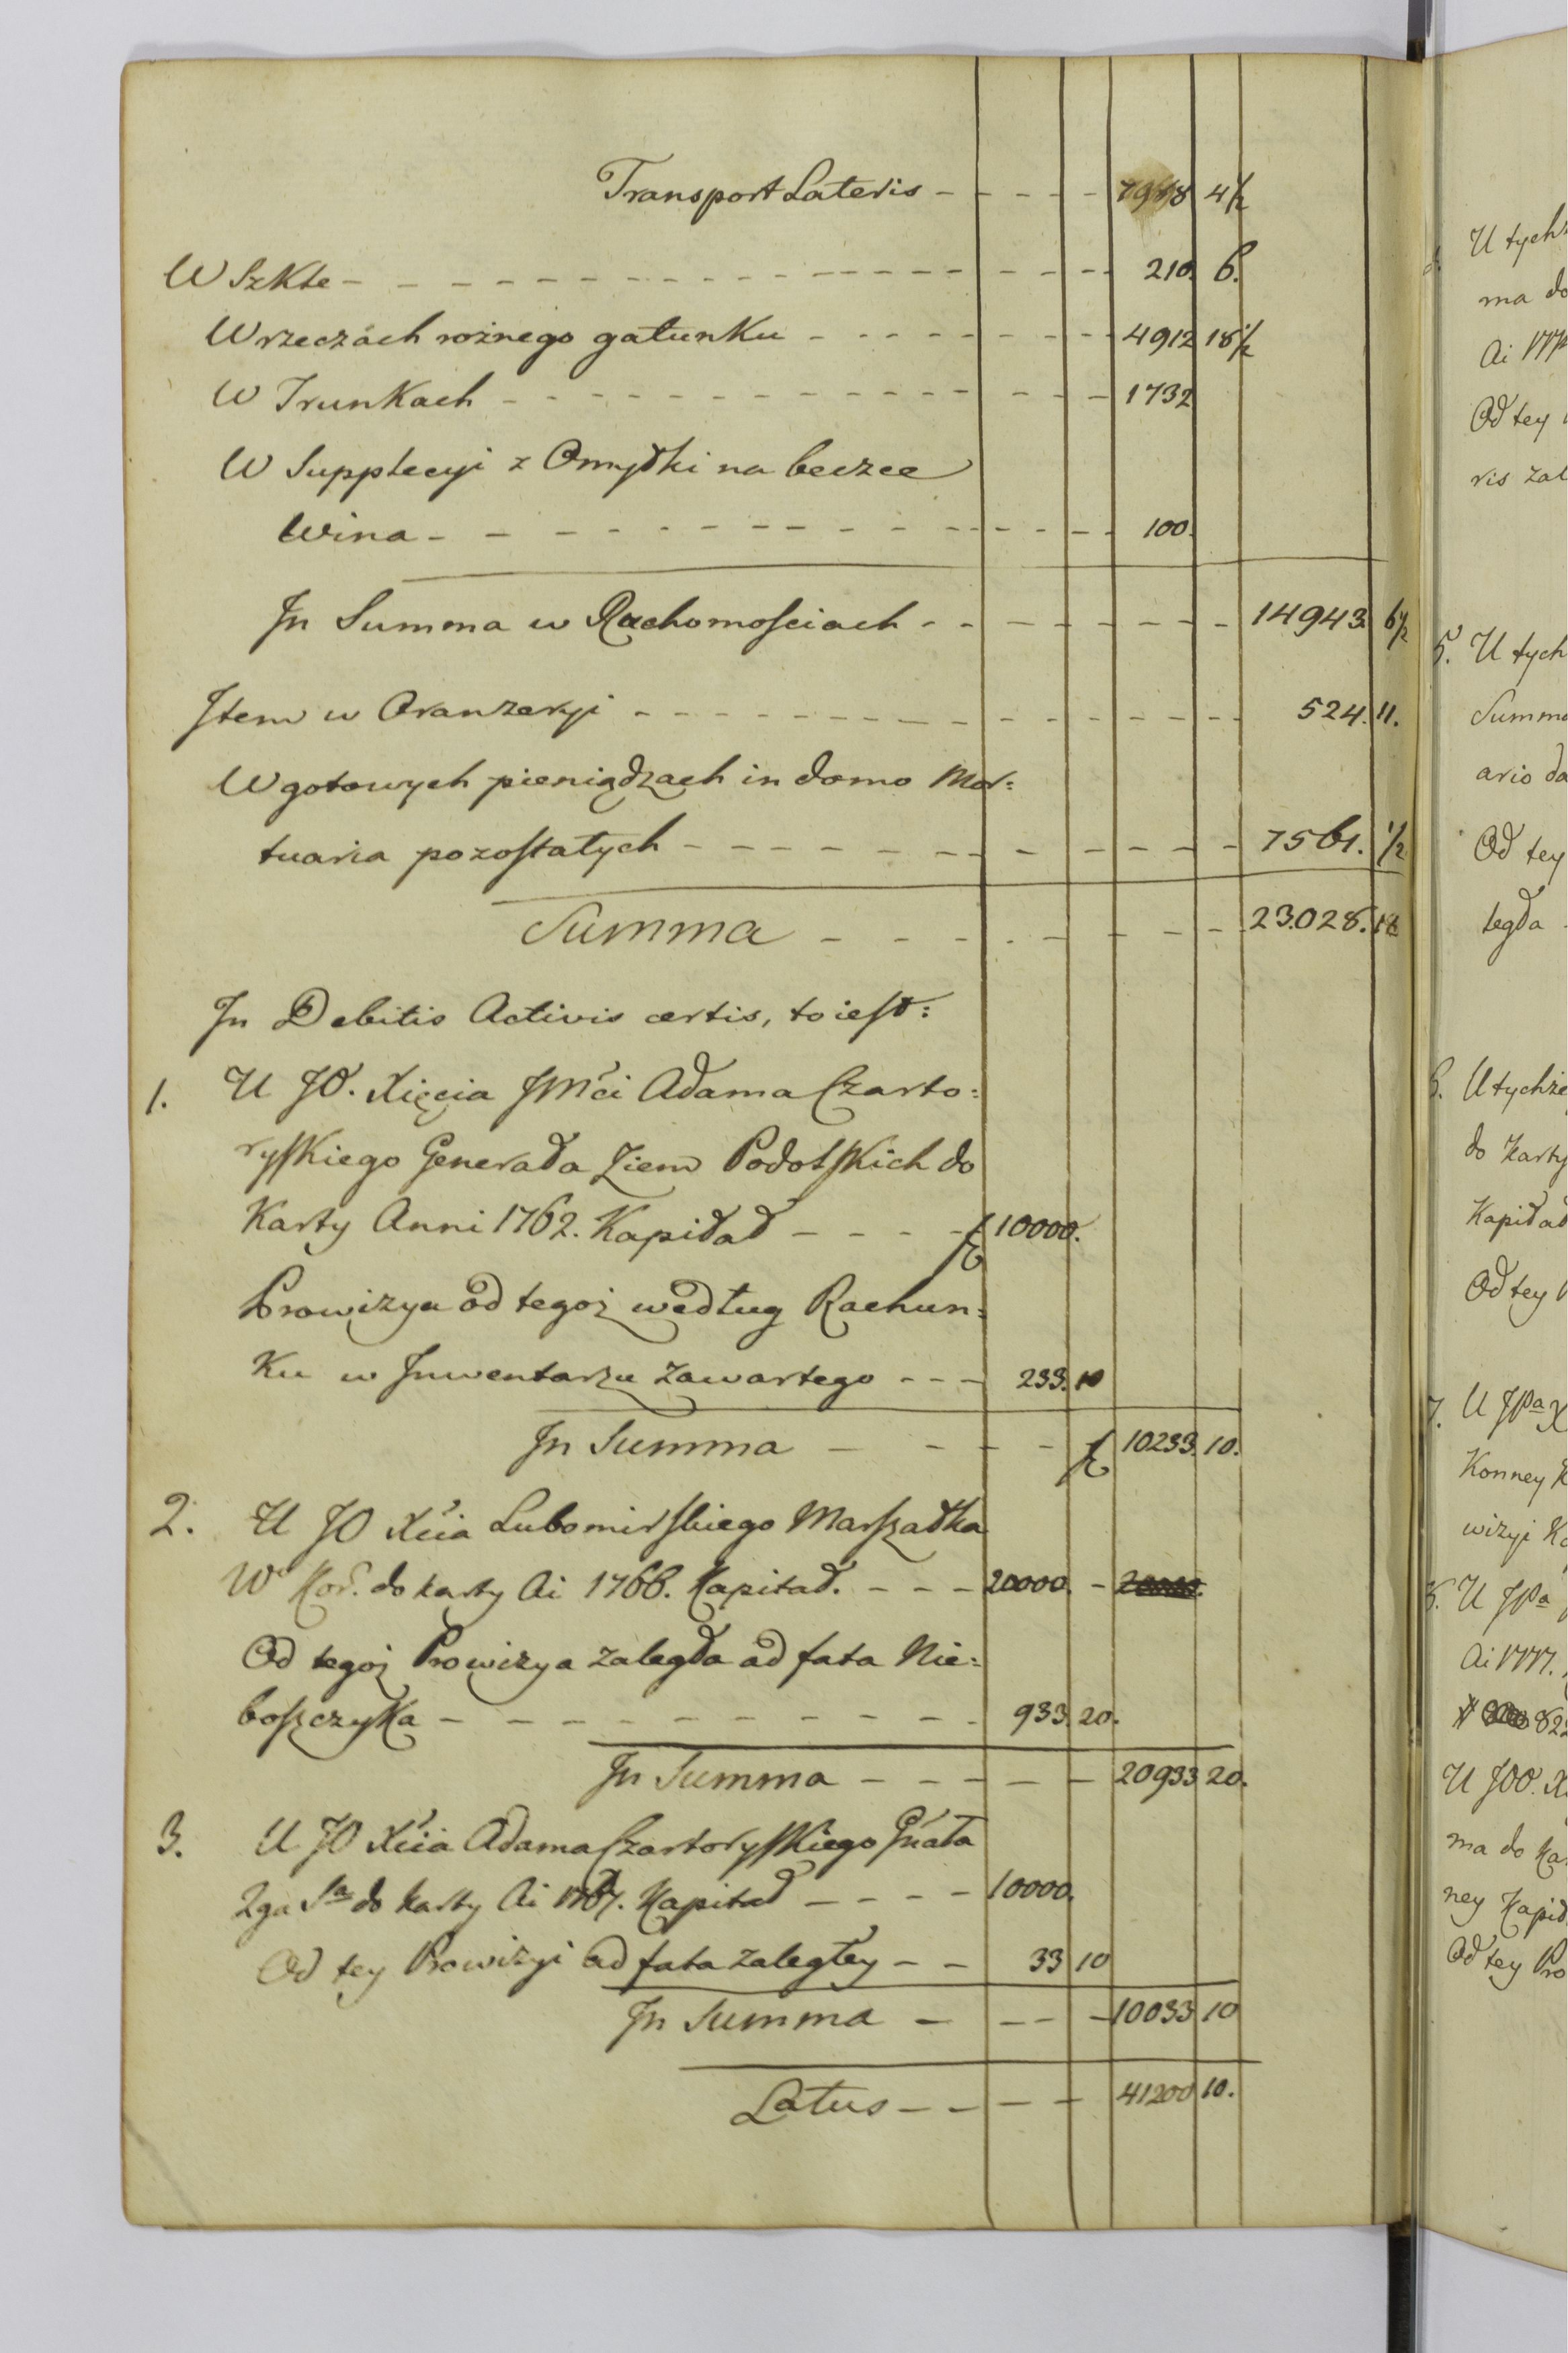 Transport Lateris - - - - - 7988 4½
W Szkle - - - - - 210. 6.
W rzeczách rożnego gatunku - - - - - 4912 18½
W Trunkach - - - - - 1732
W Supplecyi z Omyłki na beczce
Wina - - - - - 100.
In Summa w Ruchomościach - - - - - 14943 6½
Item w Oranżeryi - - - - - 524. 11.
W gotowych pieniądzach in domo Mor=
tuaria pozostałych - - - - - 7561. ½
Summa - - - - - 23.028. 18
In Debitis Activis certis, to iest:
1. U JO. Xięcia JMći Adama Czarto=
ryskiego Generała Ziem Podolskich do
Karty Anni 1762. Kapitał - - - - 10000.
Prowizya od tegoż według Rachun=
ku w Inwentarzu zawartego - - - 233. 10
In Summa - - - - 10233. 10.
2. U JO Xćia Lubomirskiego Marszałka
W Kor. do karty Ai 1766. Kapitał. - - - 20000. -
Od tegoż Prowizya zaległa ad fata Nie=
boszczyka - - - - - 933. 20.
In Summa - - - - - 20933 20.
3. U JO Xćia Adama Czartoryskiego Gnała
2ga Sa do karty Ai 1767. Kapitał - - - - 10000.
Od tey Prowizyi ad fata zaległey - - 33 10
In Summa - - - - 10033 10
Latus - - - - 41200 10.
U tychż
ma do
Ai
Od tey
ris zal
5. U tych
Summa
ario da
Od tey
legła
6. U tychże
do Karty
Kapitał
Od tey
7. U JPa X
Konney
wizyi
U JPa
Ai 1777.
U JOO. X
ma do ka
ney Kapit
Od tey Pro